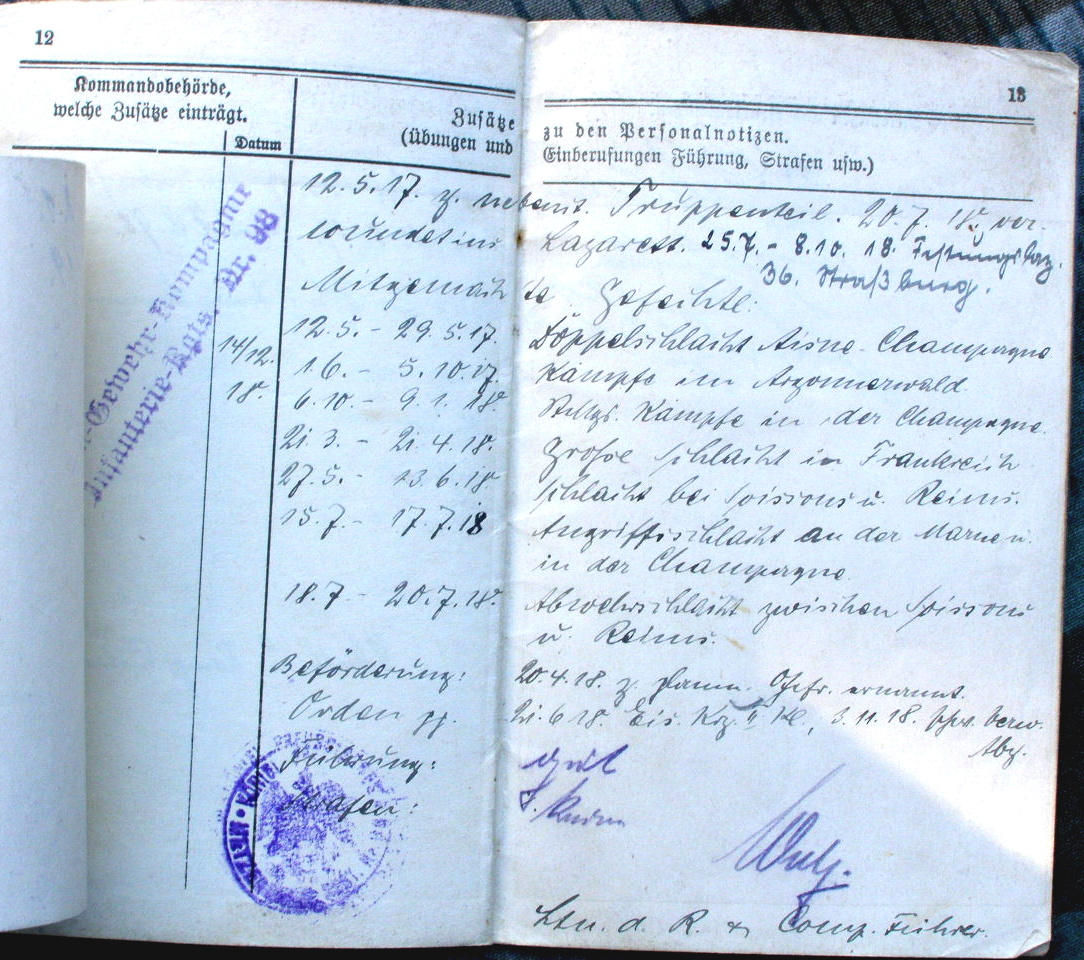 12
13
Kommandobehörde,
welche Zusätze einträgt.
Datum
Zusätze zu den Personalnotizen.
(Übungen und Einberufungen Führung, Strafen usw.)
-Gewehr-Kompagnie
Infanterie-Regts. Nr. 98
14/12.
18.
12.5.17. z. nebenst. Truppenteil. 20.7.18. ver-
wundet ins Lazarett. 25.7. - 8.10.18. Festungslaz.
36. Straßburg.
Mitgemachte Gefechte:
12.5. - 29.5.17. Doppelschlacht Aisne-Champagne
1.6. - 5.10.17. Kämpfe im Argonnerwald
6.10. - 9.1.18. Stellgs. Kämpfe in der Champagne.
21.3. - 21.4.18. Große Schlacht in Frankreich
27.5. - 13.6.18. Schlacht bei Soissons u. Reims.
15.7. - 17.7.18 Angriffsschlacht an der Marne u.
in der Champagne
18.7 - 20.7.18. Abwehrschlacht zwischen Soissons
u. Reims.
Beförderung: 20.4.18. z. Gefr. ernannt.
Orden pp. 21.6.18. Eis. Krz. II Kl., 3.11.18. Verw.
Abz.
Führung: gut
Strafen: Keine
Ltn. d. R. & Comp. Führer.